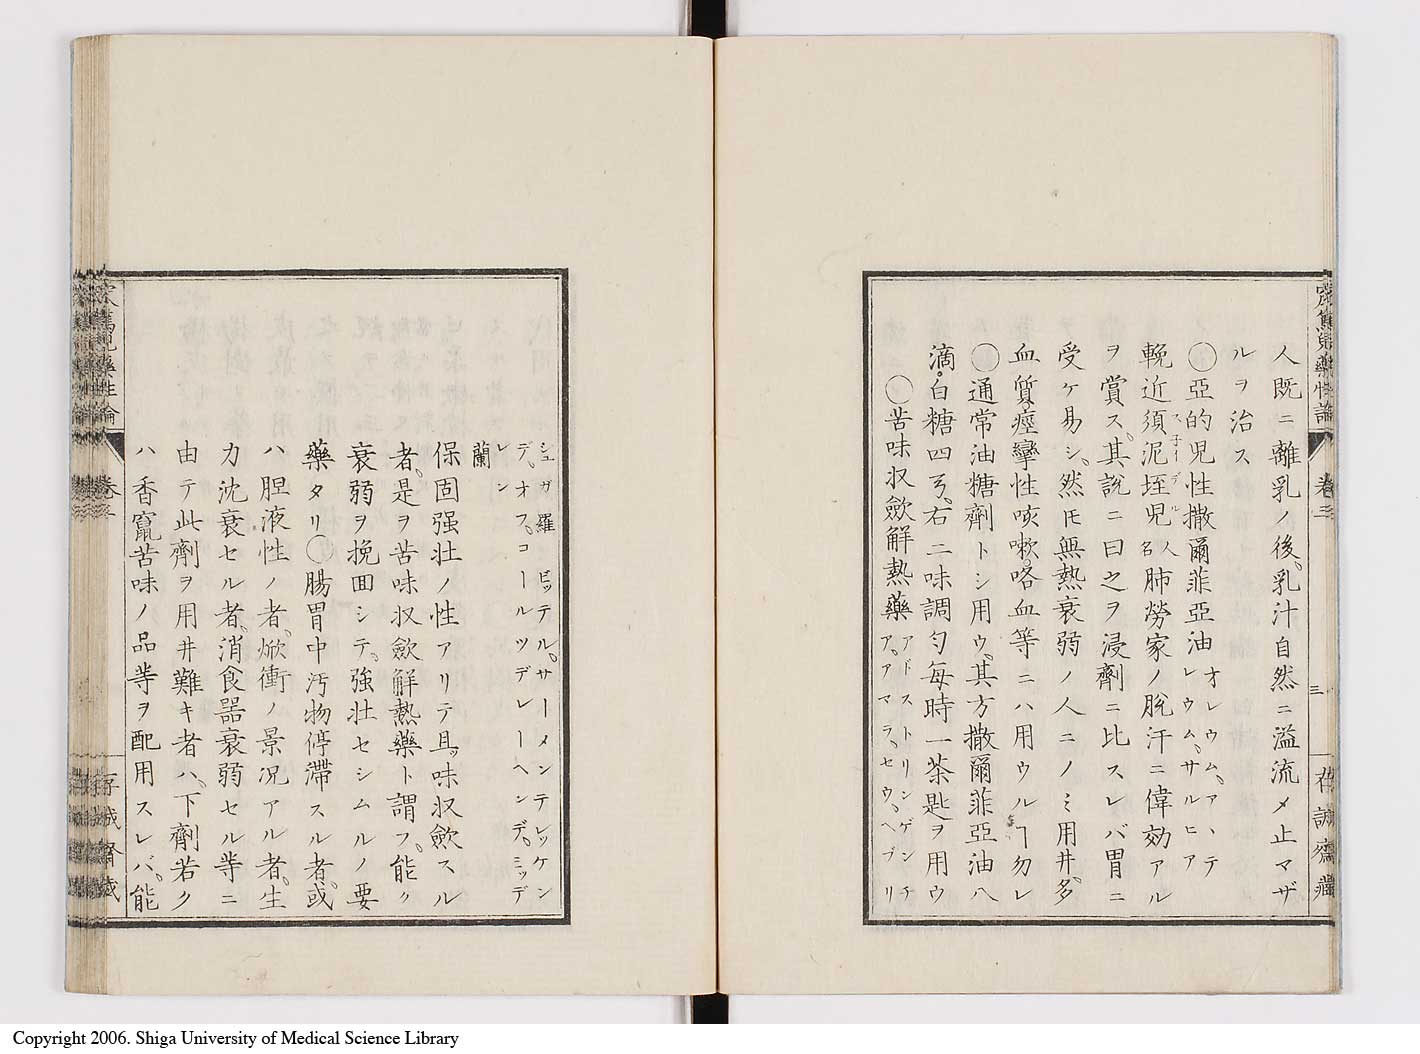 人既ニ離乳ノ後、乳汁自然ニ溢流メ止マザ
ルヲ治ス
〇亞的児性撒爾菲亞油 オレウム、アハテレウム、サルヒア
輓近須泥垤児人名 スネーデル 肺勞家ノ脱汗ニ偉効アル
ヲ賞ス、其説ニ曰之ヲ浸劑ニ比スレバ胃ニ
受ケ易シ、然ㇳモ無熱衰弱ノ人ニノミ用井、多
血質、痙攣性咳嗽、咯血等ニハ用ウルヿ勿レ
〇通常油糖劑トシ用ウ、其方撒爾菲亞油八
滴、白糖四弓、右二味調匀毎時一茶匙ヲ用ウ
〇苦味収斂解熱藥 アドストリンゲンテア、アマラ、セウ、ヘブリ
卷三
存誠齋藏
シュガ羅 ビッテル、サーメンテレッケン
デ、オフ、コールツデレーヘンデ、ミッデ
レン
蘭
保固强壮ノ性アリテ且、味収斂スル
者、是ヲ苦味収斂解熱藥ト謂フ、能ク
衰弱ヲ挽回シテ、強壮セシムルノ要
藥タリ〇腸胃中汚物停滞スル者、或
ハ胆液性ノ者、焮衝ノ景况アル者、生
力沈衰セル者、消食噐衰弱セル等ニ
由テ此劑ヲ用井難キ者ハ、下劑若ク
ハ香竄苦味ノ品等ヲ配用スレバ、能
藥性論
卷三
存誠齋藏
Copyright 2006. Shiga University of Medical Science Library